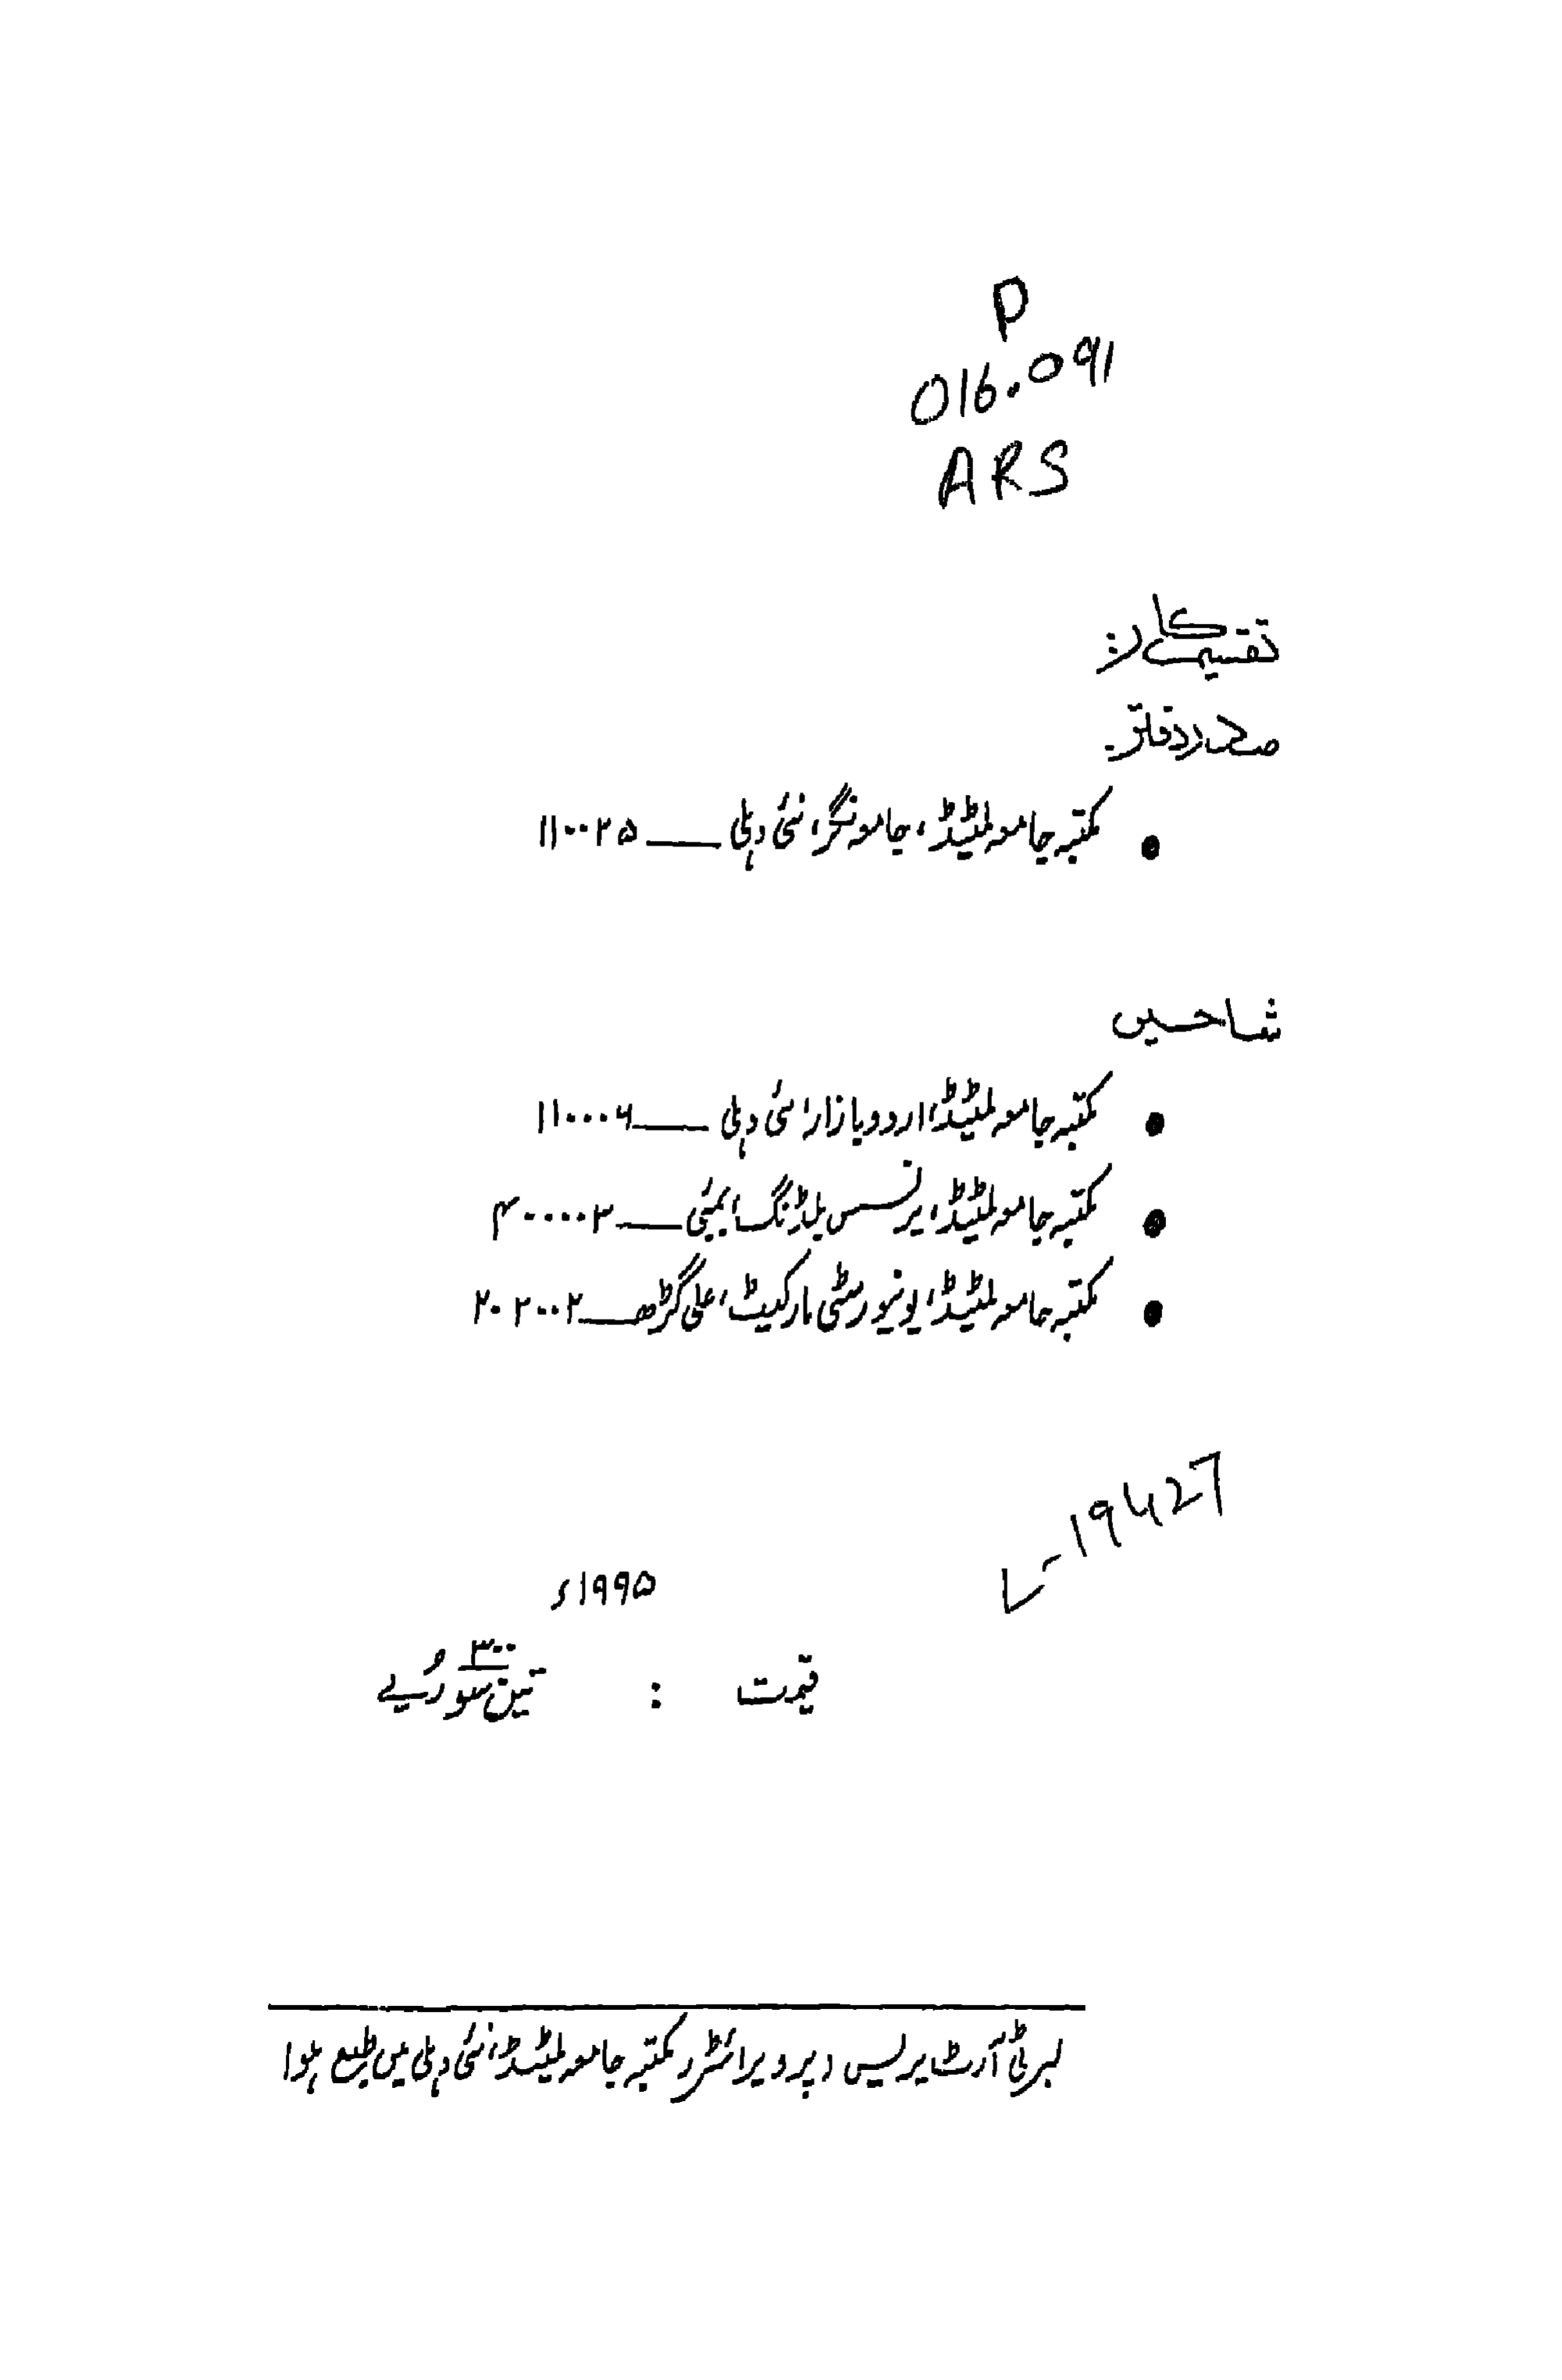 P
016.091
ARS
تقسیم کار:
صدر دفتر
● مکتبہ جامعہ لمیٹڈ، جامعہ نگر، نئی دہلی ــــ ۱۱۰۰۲۵
شاخیں
● مکتبہ جامعہ لمیٹڈ، اردو بازار، نئی دہلی ــــ ۱۱۰۰۰۶
● مکتبہ جامعہ لمیٹڈ، پرنسس بلڈنگ، بمبئی ــــ ۴۰۰۰۰۳
● مکتبہ جامعہ لمیٹڈ، یونیورسٹی مارکیٹ، علی گڑھ ــــ ۲۰۲۰۰۲
19427
۱۹۹۵ء
قیمت : ۳۰۰ تین سو روپے
لبرٹی آرٹ پریس (پروپرائٹرز مکتبہ جامعہ لمیٹڈ) نئی دہلی میں طبع ہوا